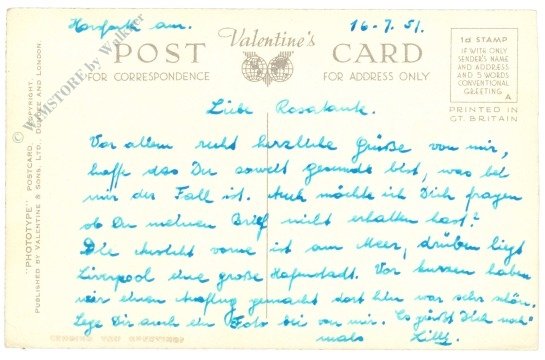 Horfurth am. 16-7.51.
Valentine's
POST CARD
FOR CORRESPONDENCE FOR ADDRESS ONLY
1d STAMP
IF WITH ONLY
SENDER'S NAME
AND ADDRESS
AND 5 WORDS
CONVENTIONAL
GREETING
A
PRINTED IN
GT. BRITAIN
© WIMSTORE by Walküre
"PHOTOTYPE" POSTCARD. COPYRIGHT.
PUBLISHED BY VALENTINE & SONS, LTD. DUNDEE AND LONDON.
Liebe Rosatante.
Vor allem recht herzliche Grüße von mir,
hoffe das Du soweit gesund bist, was bei
mir der Fall ist. Auch möchte ich Dich fragen
ob Du meinen Brief nicht erhalten hast!
Die Ansicht vorne ist am Meer, drüben liegt
Liverpool eine große Hafenstadt. Vor kurzem haben
wir einen Ausflug gemacht dort hin war sehr schön.
Lege Dir auch ein Foto bei von mir. Es grüßt Dich noch-
mals Lilli.